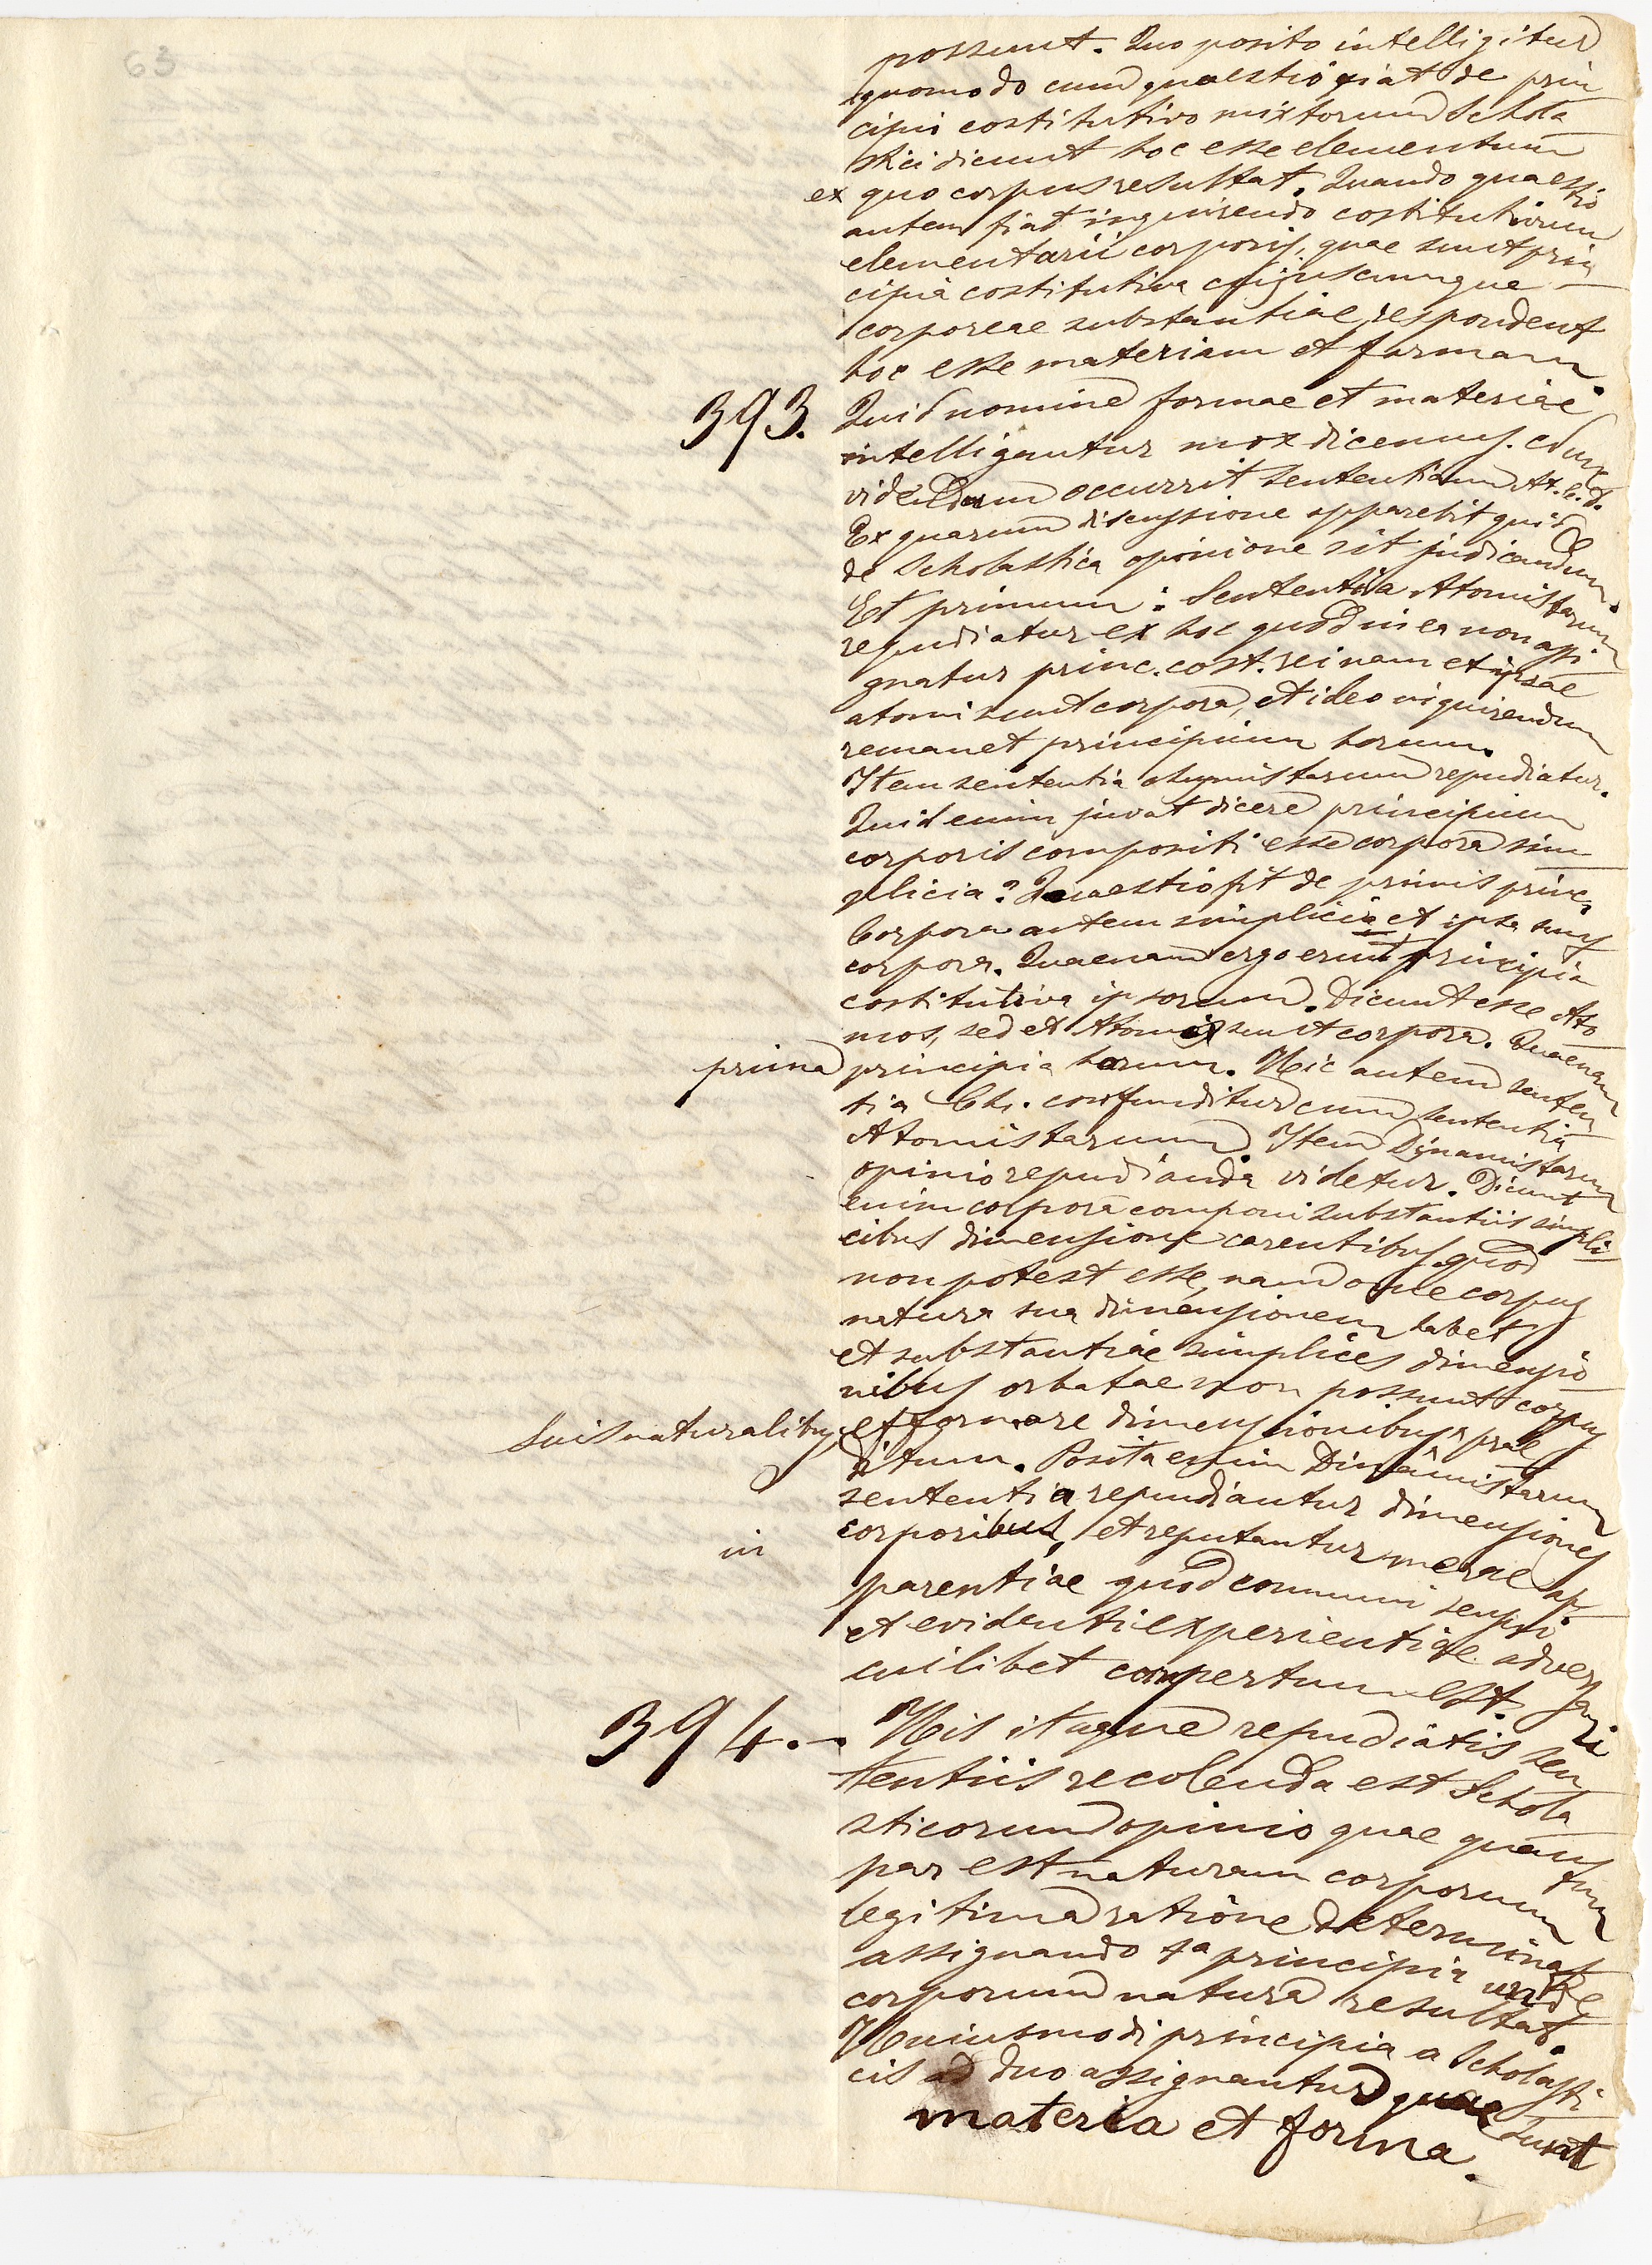 63
possunt. Quo posito intelligitur
quomodo cum quaestio fiat de prin
cipio costitutivo mixtorum Schola
stici dicunt hoc esse elementum
ex quo corpus resultat. Quando quaestio
autem fiat inquirendo costitutivum
elementarii corporis, quae sunt prin
cipia costitutiva cujuscumque
corporeae substantiae, respondent
hoc esse materiam et formam.
393. Quid nomine formae et materiae
intelligantur mox dicemus.
videndum occurrit sententiam At. C. D.
Ex quarum discussione apparebit quid
de Scholastica opinione sit judicandum.
Et primum: Sententia Atomistarum
repudiatur ex hoc quod in ea non assi
gnatur princ. cost. rei nam et ipsae
atomi sunt corpora, et ideo inquirendum
remanet principium horum.
Item sententia chymistarum repudiatur.
Quid enim juvat dicere principium
corporis compositi esse corpora sim
plicia? Quaestio fit de primis princ.
Corpora autem simplicia et ipsa sunt
corpora. Quaenam ergo erunt principia
costitutiva ipsorum. Dicunt esse Ato
mos, sed et Atomi sunt corpora. Quaenam
prima principia horum. Hic autem senten
tia Ch. confunditur cum sententia
Atomistarum. Item Dynamistarum
opinio repudianda videtur. Dicunt
enim corpora componi substantiis simpli
cibus dimensione carentibus, quod
non potest esse, nam omne corpus
natura sua dimensionem habet
et substantiae simplices dimensio
nibus orbatae non possunt corpus
suis naturalibus efformare dimensionibus prae
ditum. Posita enim Dinamistarum
sententia repudiantur dimensiones
in corporibus, et reputantur merae ap
parentiae quod communi sensui
et evidenti experientiae adversari
cuilibet compertum est.
394. - His itaque repudiatis sen
tentiis recolenda est Schola
sticorum opinio quae quantum
par est naturam corporum
legitima ratione determinat
assignando 1a principia unde
corporum natura resultat.
Huiusmodi principia a Scholasti
cis ad duo assignantur quae sunt
materia et forma.